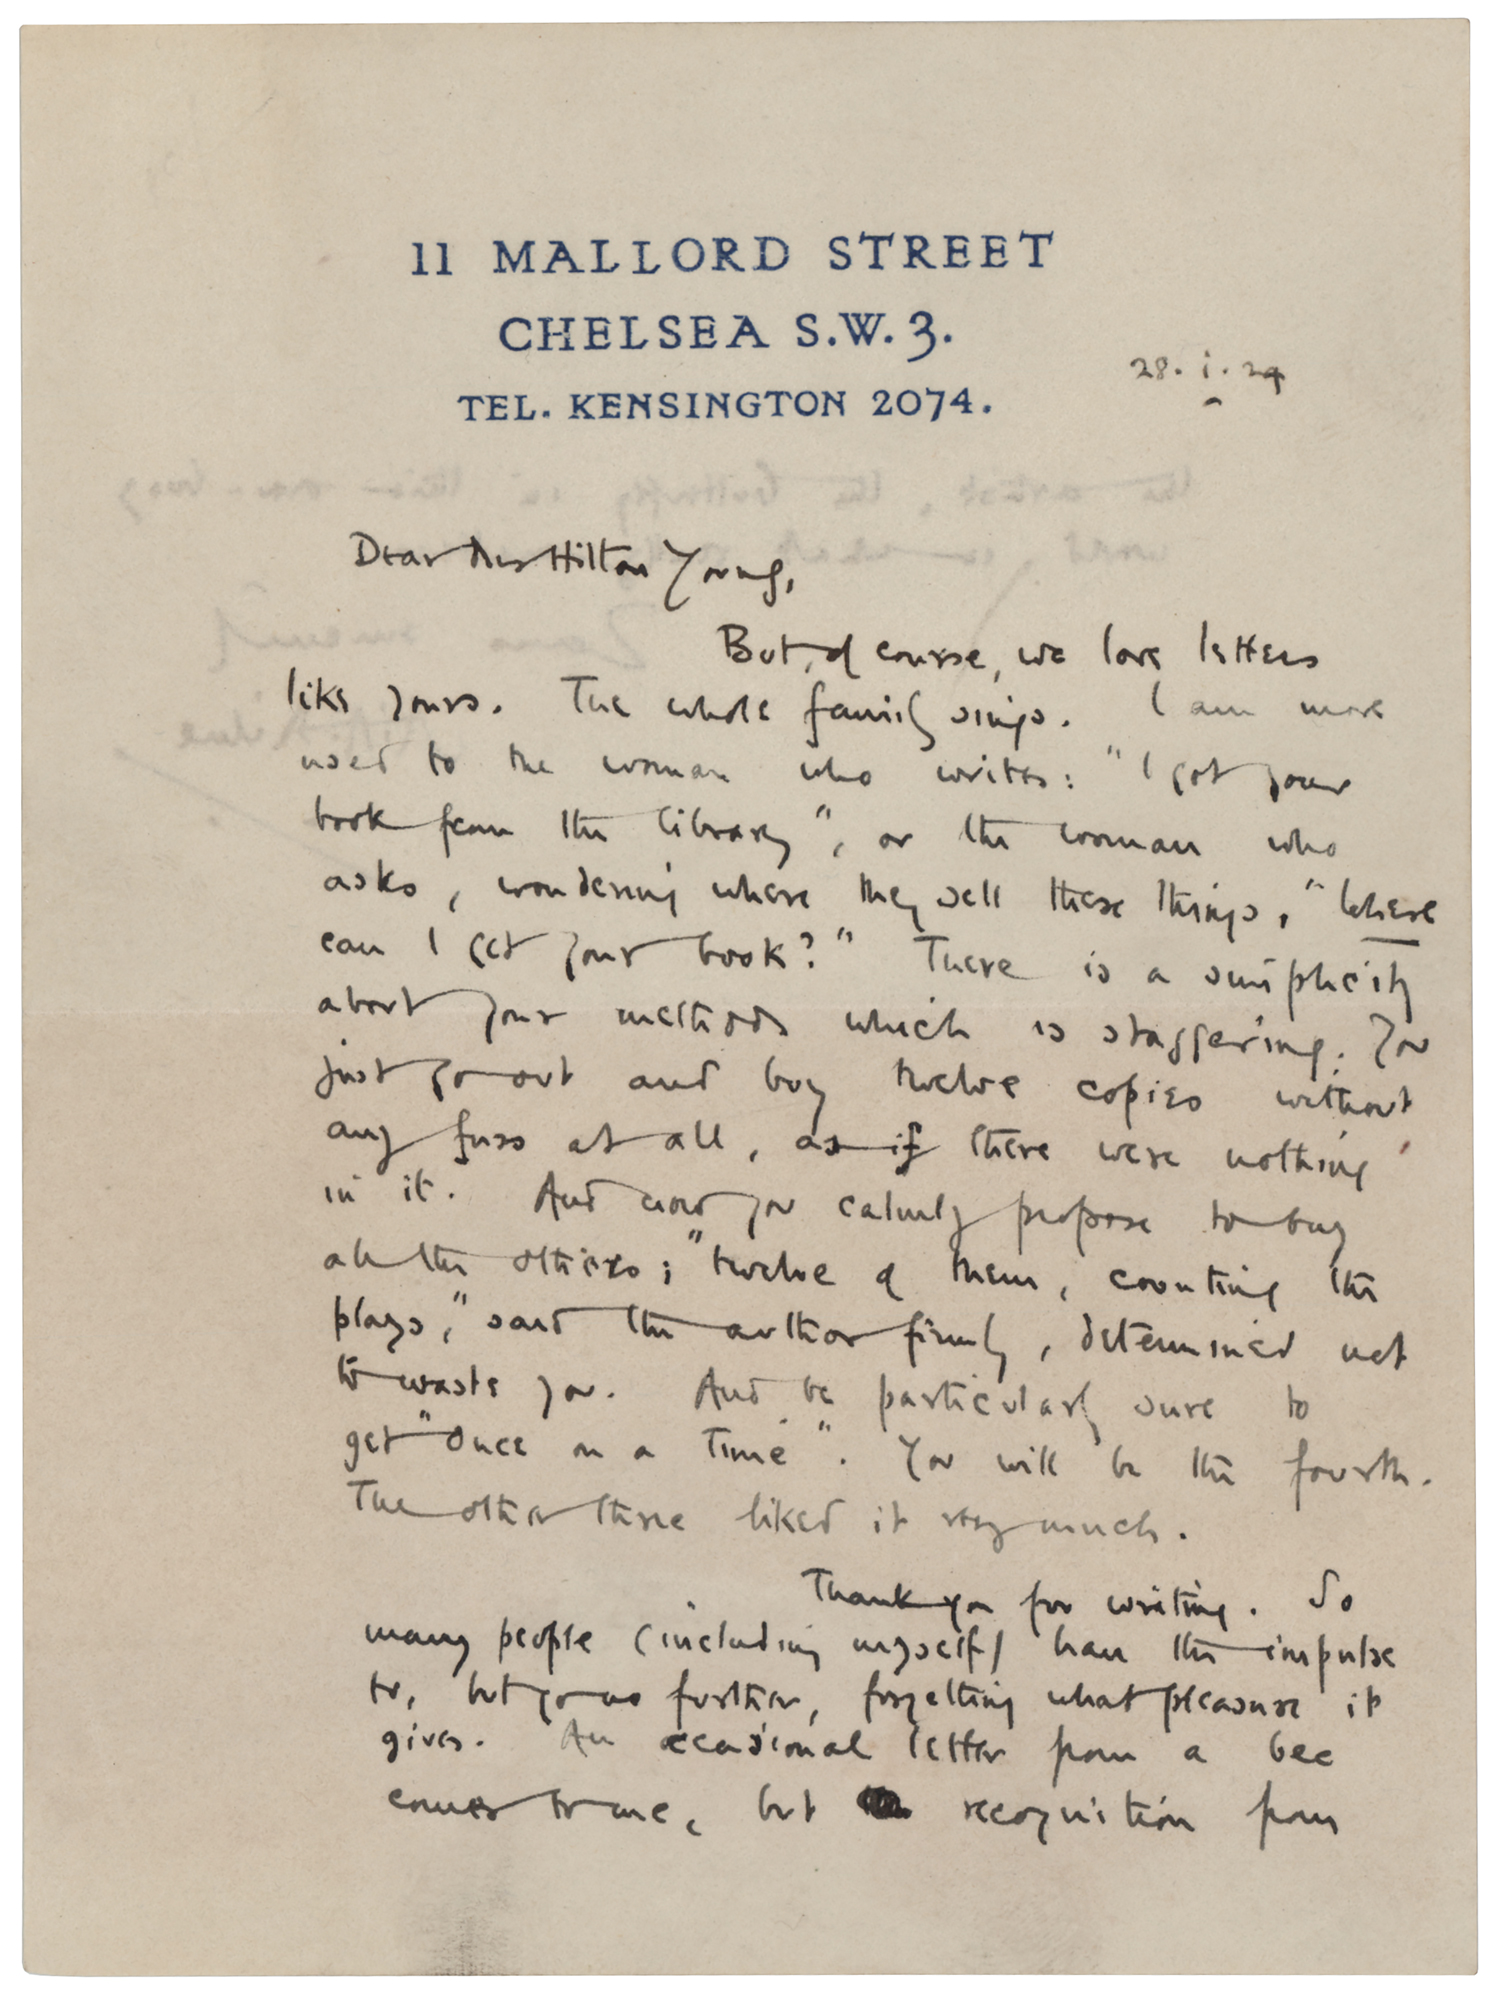 11 MALLORD STREET
CHELSEA S.W.3.
TEL. KENSINGTON 2074.
28.i.24
Dear Mrs Hilton Young,
But, of course, we love letters
like yours. The whole family sings. I am more
used to the woman who writes: "I got your
book from the library", or the woman who
asks, wondering where they sell these things, "Where
can I get your book?" There is a simplicity
about your methods which is staggering. You
just go out and buy twelve copies without
any fuss at all, as if there were nothing
in it. And now you calmly propose to buy
all the others; "twelve of them, counting the
plays," said the author firmly, determined not
to waste you. And be particularly sure to
get "Once on a Time". You will be the fourth.
The other three liked it very much.
Thank you for writing. So
many people (including myself) have the impulse
to, but go no further, forgetting what pleasure it
gives. An occasional letter from a bee
comes to me, but recognition from